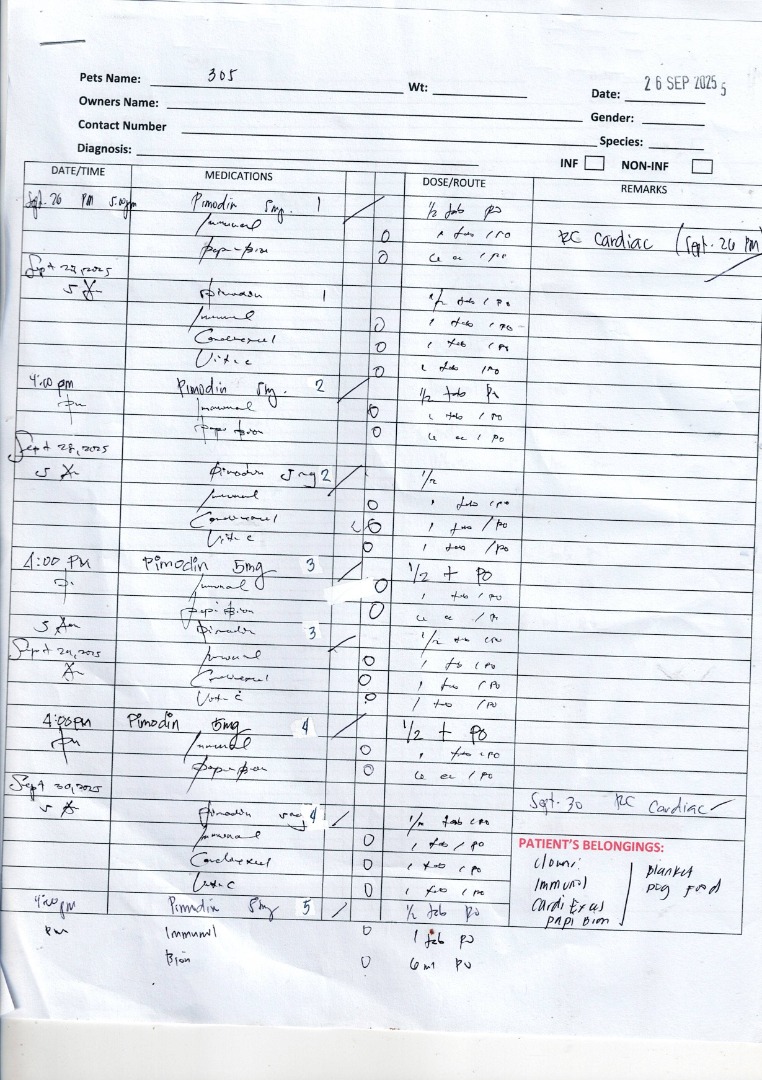 Pets Name: 305 Wt: Date: 26 SEP 2025 5
Owners Name: Gender:
Contact Number Species:
Diagnosis: INF NON-INF
DATE/TIME MEDICATIONS DOSE/ROUTE REMARKS
Sept. 26 PM 5:00pm Pimodin 5mg. 1 1/2 tab PO
Immunol 0 1 tab / PO RC Cardiac (Sept. 26 PM)
papi-bion 0 cc / PO
Sept 27, 2025
5 Pimodin 1 1/2 tab / PO
Immunol 0 1 tab / PO
0 1 tab / PO
Vit c 0 1 tab / PO
4:00 pm Pimodin 5mg. 2 1/2 tab PO
pm Immunol 0 1 tab / PO
papi bion 0 cc / PO
Sept 28, 2025
5 Am Pimodin 5 mg 2 1/2
Immunol 0 1 tab / PO
0 1 tab / PO
Vit c 0 1 tab / PO
4:00 PM Pimodin 5mg 3 1/2 t PO
Immunol 0 1 tab / PO
papi bion 0 cc / PO
5 Am Pimodin 3 1/2 tab / PO
Sept 29, 2025 Immunol 0 1 tab / PO
0 1 tab / PO
Vit c 0 1 tab / PO
4:00pm Pimodin 5mg 4 1/2 t PO
pm Immunol 0 1 tab / PO
papi-bion 0 cc / PO
Sept 30, 2025 Sept. 30 RC Cardiac
5 Pimodin 5mg 4 1/2 tab / PO
Immunol 0 1 tab / PO PATIENT'S BELONGINGS:
0 1 tab / PO Immunol Blanket
Vit c 0 1 tab / PO Dog Food
4:00 pm Pimodin 5mg 5 1/2 tab PO papi Bion
pm Immunol 0 1 tab PO
Bion 0 6 ml PO